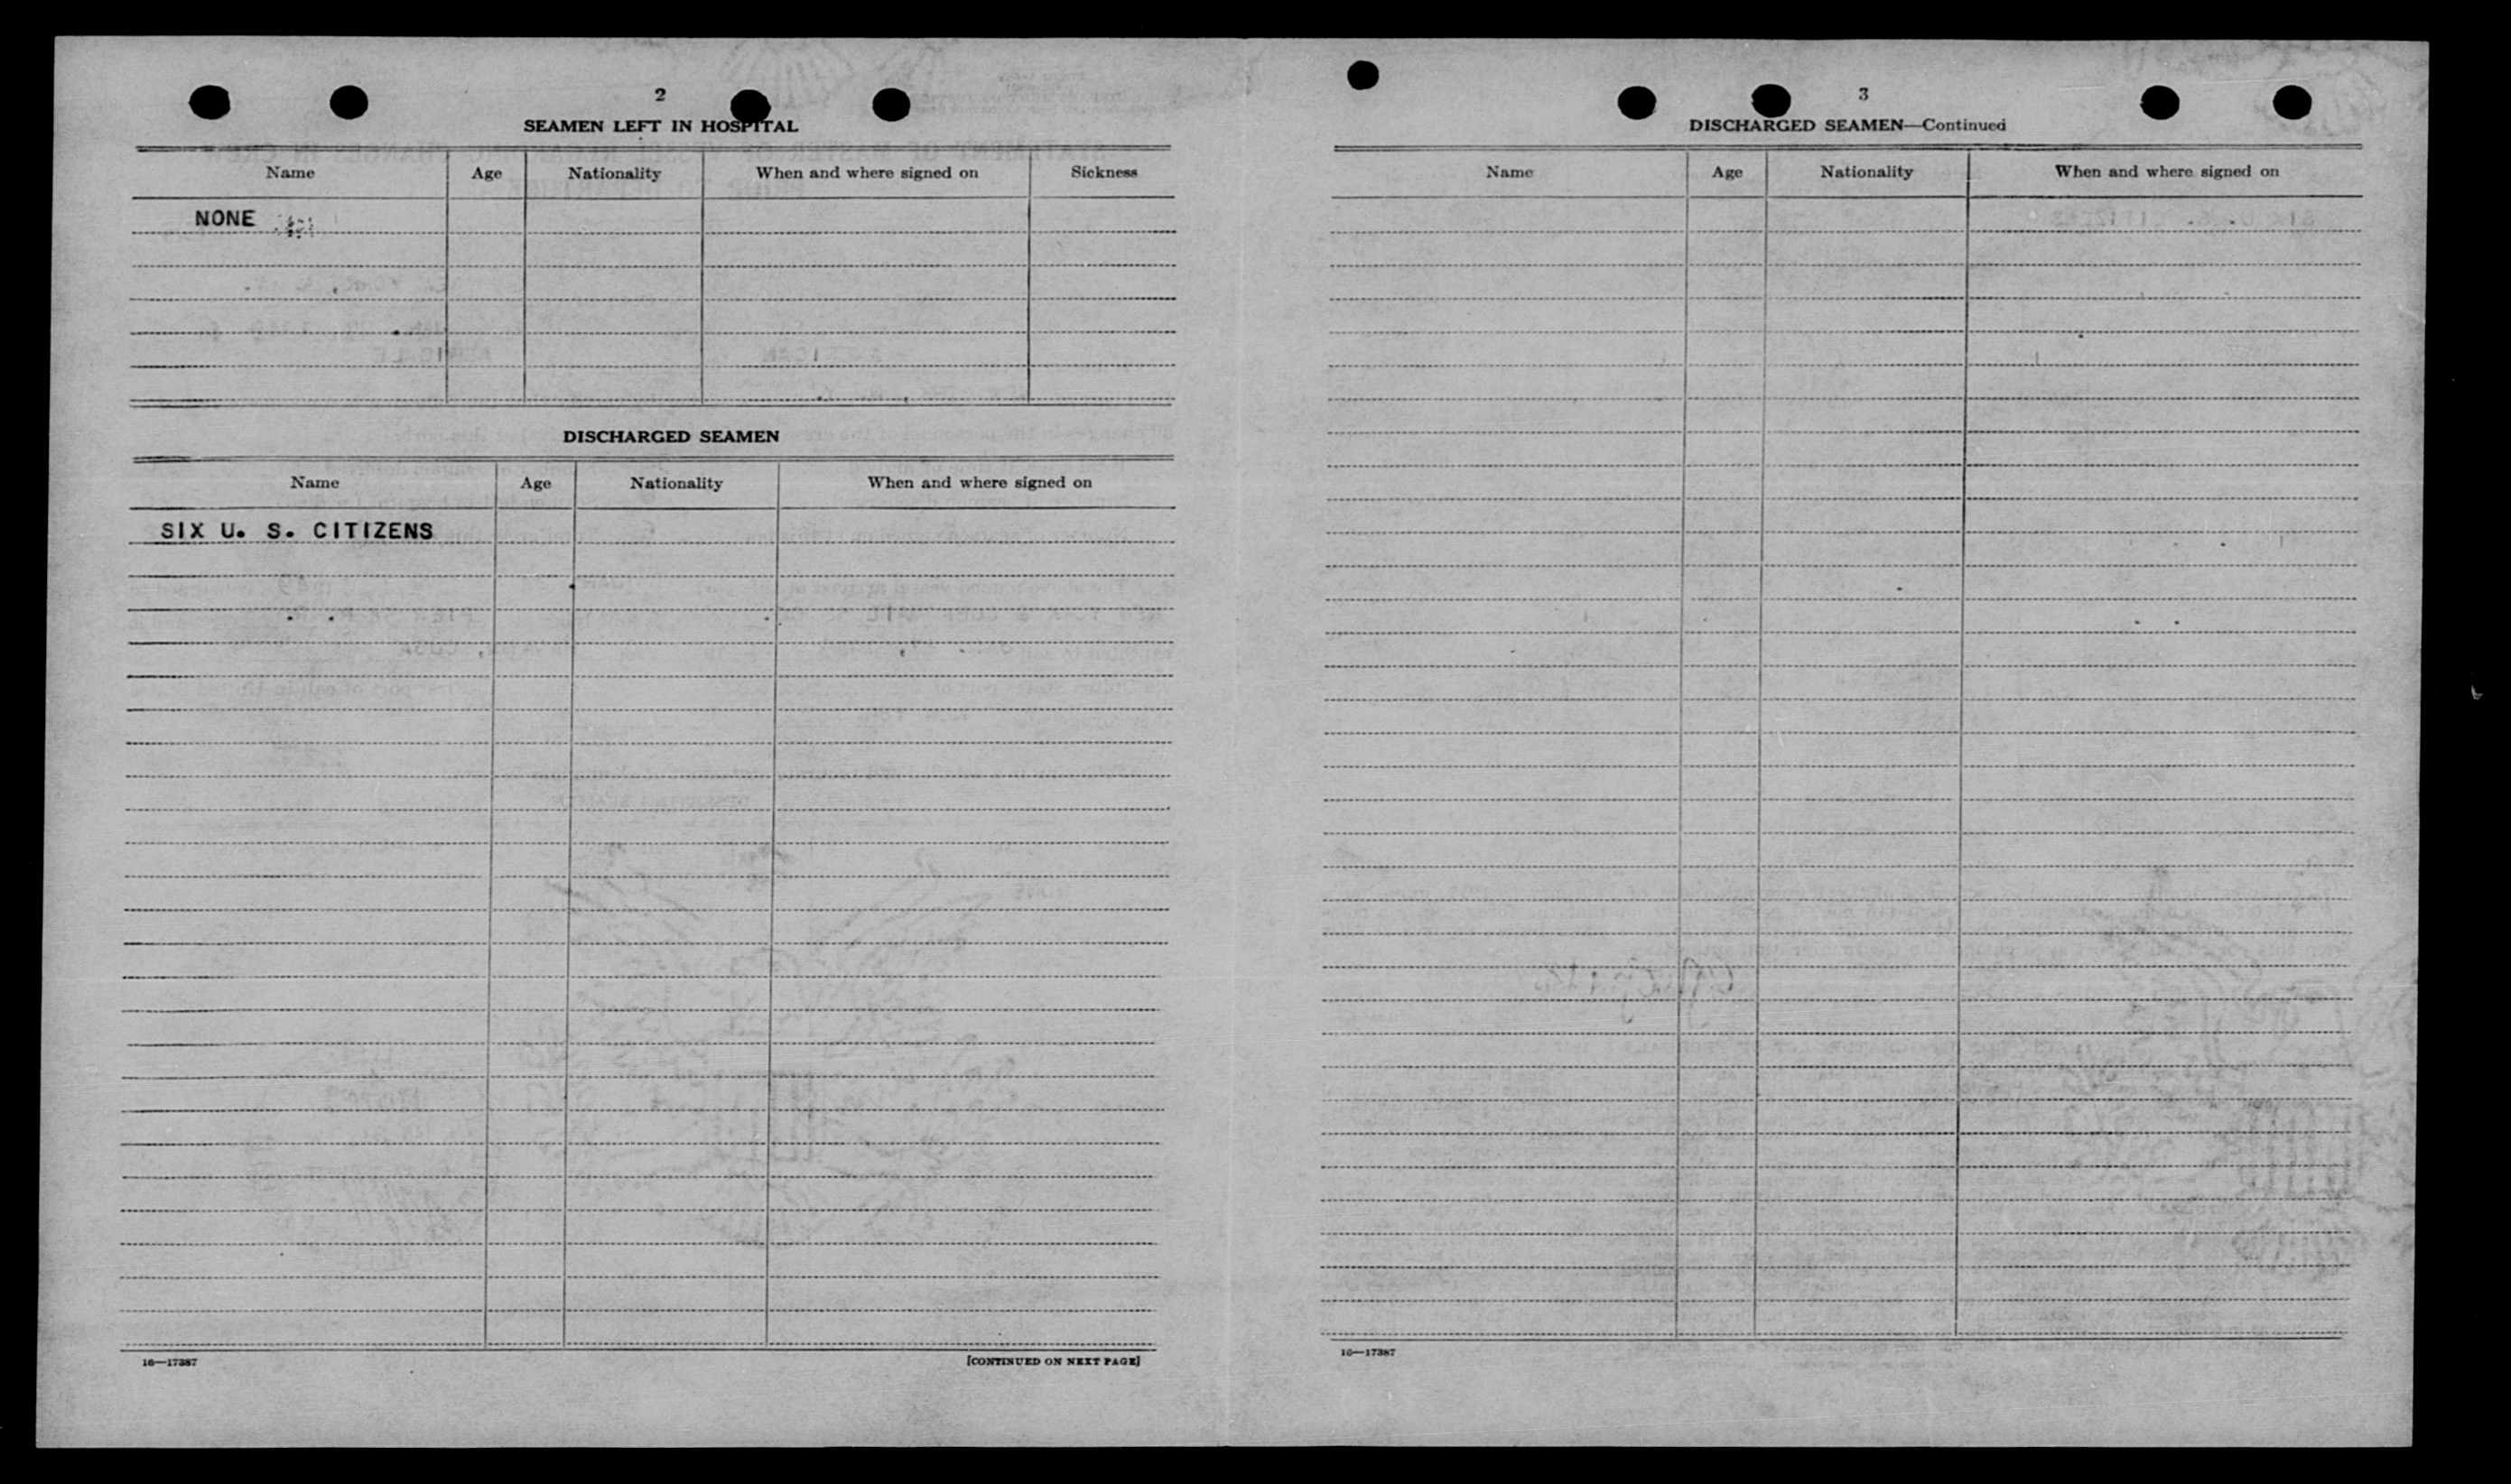 2
SEAMEN LEFT IN HOSPITAL
Name Age Nationality When and where signed on Sickness
NONE
DISCHARGED SEAMEN
Name Age Nationality When and where signed on
SIX U. S. CITIZENS
16—17387 [CONTINUED ON NEXT PAGE]
3
DISCHARGED SEAMEN—Continued
Name Age Nationality When and where signed on
16—17387